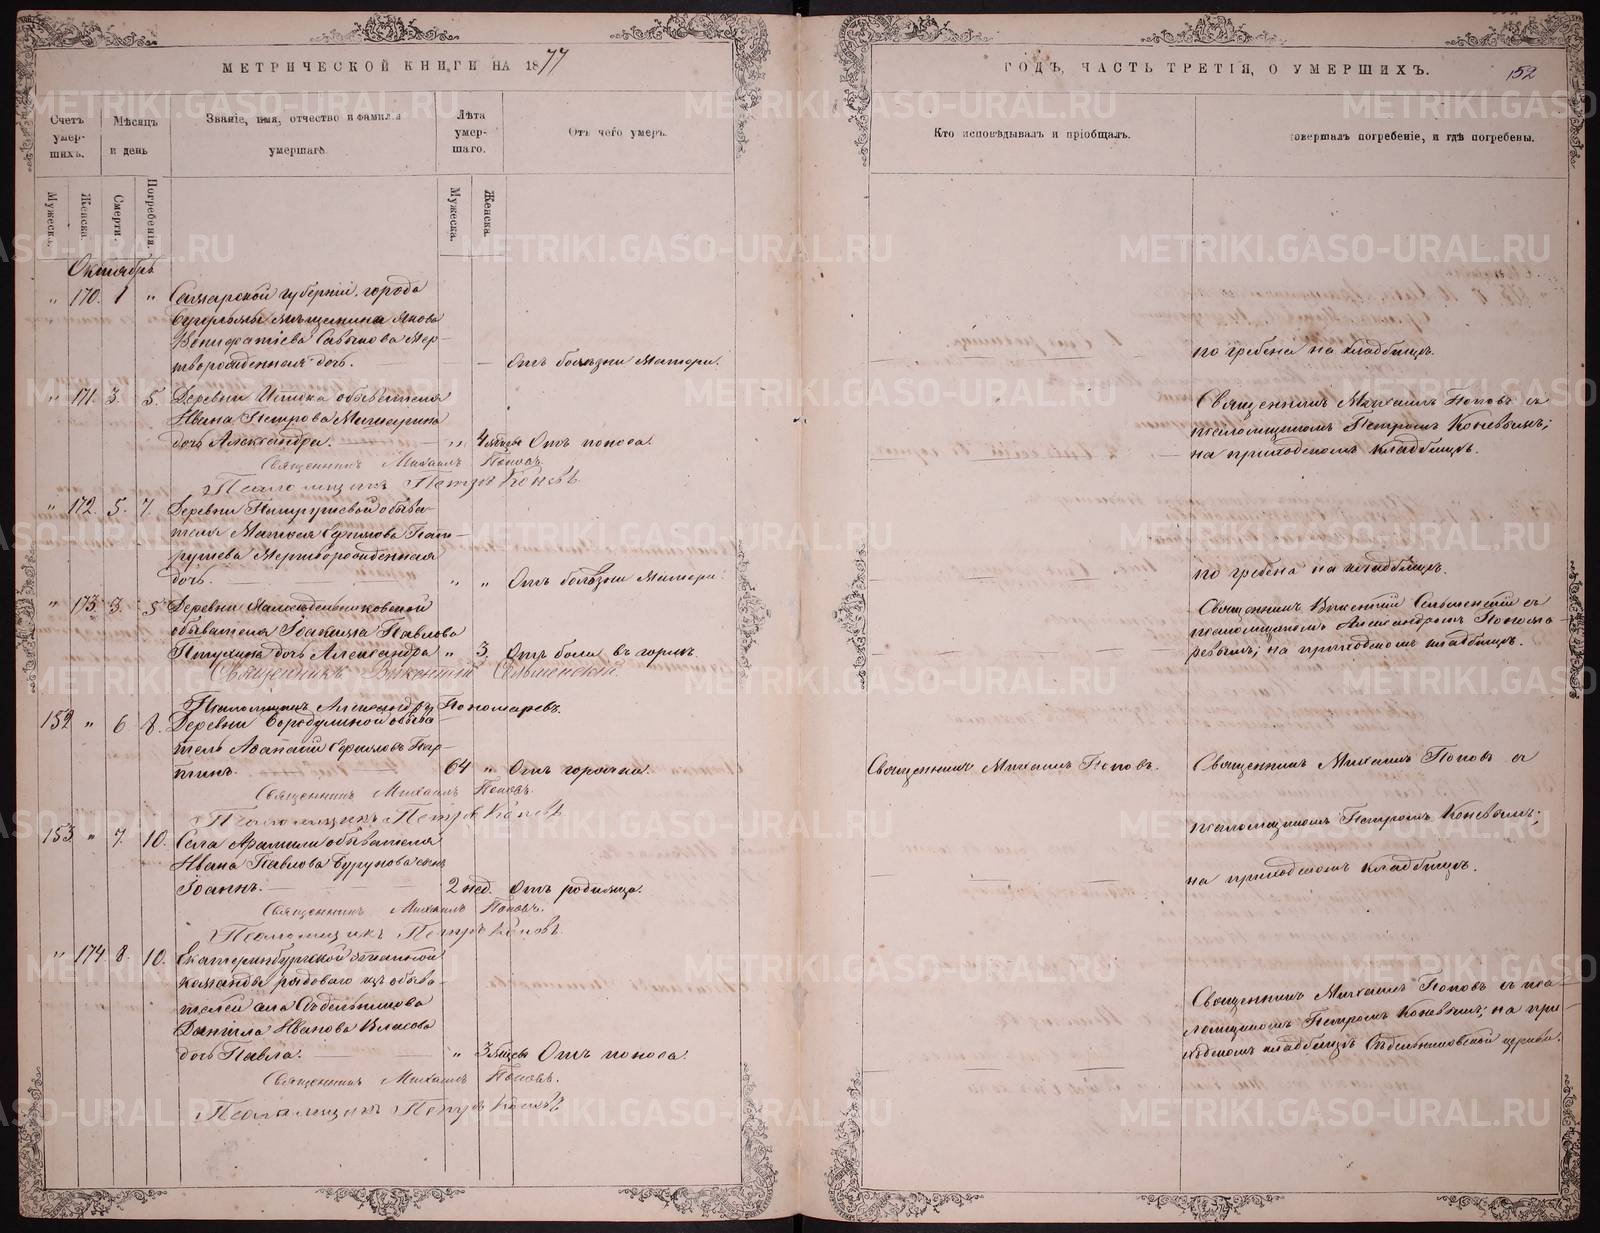 МЕТРИЧЕСКОЙ КНИГИ НА 1877
Счетъ умер-шихъ.
Мѣсяцъ и день
Званіе, имя, отчество и фамилія умершаго.
Лѣта умер-шаго.
Отъ чего умеръ.
Мужеска.
Женска.
Смерти.
Погребенія.
Мужеска.
Женска.
Октябрь
" 170. 1 " Самарской губерніи, города
Бугульмы мѣщанина Якова
Вонифатіева Савинова Мер-
творожденная дочь. — Отъ болѣзни Матери.
" 171. 3. 5. Деревни обывателя
Ивана Петрова
дочь Александра. " 4 мѣсяц Отъ поноса.
Священникъ Михаилъ Поповъ
Псаломщикъ Петръ Коневъ
" 172. 5. 7. Деревни Патрушевой обыва-
теля Матвея Ефимова Пат-
рушева Мертворожденная
дочь. " " Отъ болѣзни Матери.
" 173. 3. 5 Деревни
обывателя Іоакима Павлова
дочь Александра " 3. Отъ боли въ горлѣ.
Священникъ Викентій Сельменскій.
Псаломщикъ Александръ Пономаревъ.
152 " 6 8. Деревни Бородулиной обыва
тель Аѳанасій
64 " Отъ горячки.
Священникъ Михаилъ Поповъ.
Псаломщикъ Петръ Коневъ
153 " 7. 10. Села Арамили обывателя
Ивана Павлова Бурунова сынъ
Іоаннъ. 2 нед. Отъ родимца.
Священникъ Михаилъ Поповъ.
Псаломщикъ Петръ Коневъ.
" 174 8. 10. Екатеринбургской этапной
команды рядоваго изъ обыва-
телей села Сѣдельникова
Даніила Иванова Власова
дочь Павла. " 3 мѣсяц Отъ поноса
Священникъ Михаилъ Поповъ.
Псаломщикъ Петръ Коневъ
ГОДЪ, ЧАСТЬ ТРЕТІЯ, О УМЕРШИХЪ.
152
Кто исповѣдывалъ и пріобщалъ.
совершалъ погребеніе, и гдѣ погребены.
погребена на кладбищѣ.
Священникъ Михаилъ Поповъ съ
псаломщикомъ Петромъ Коневымъ;
на приходскомъ кладбищѣ.
погребена на кладбищѣ.
Священникъ Викентій Сельменскій съ
псаломщикомъ Александромъ Понома-
ревымъ; на приходскомъ кладбищѣ.
Священникъ Михаилъ Поповъ.
Священникъ Михаилъ Поповъ съ
псаломщикомъ Петромъ Коневымъ;
на приходскомъ кладбищѣ.
Священникъ Михаилъ Поповъ съ пса-
ломщикомъ Петромъ Коневымъ; на при-
ходскомъ кладбищѣ Сѣдельниковской церкви.
METRIKI.GASO-URAL.RU